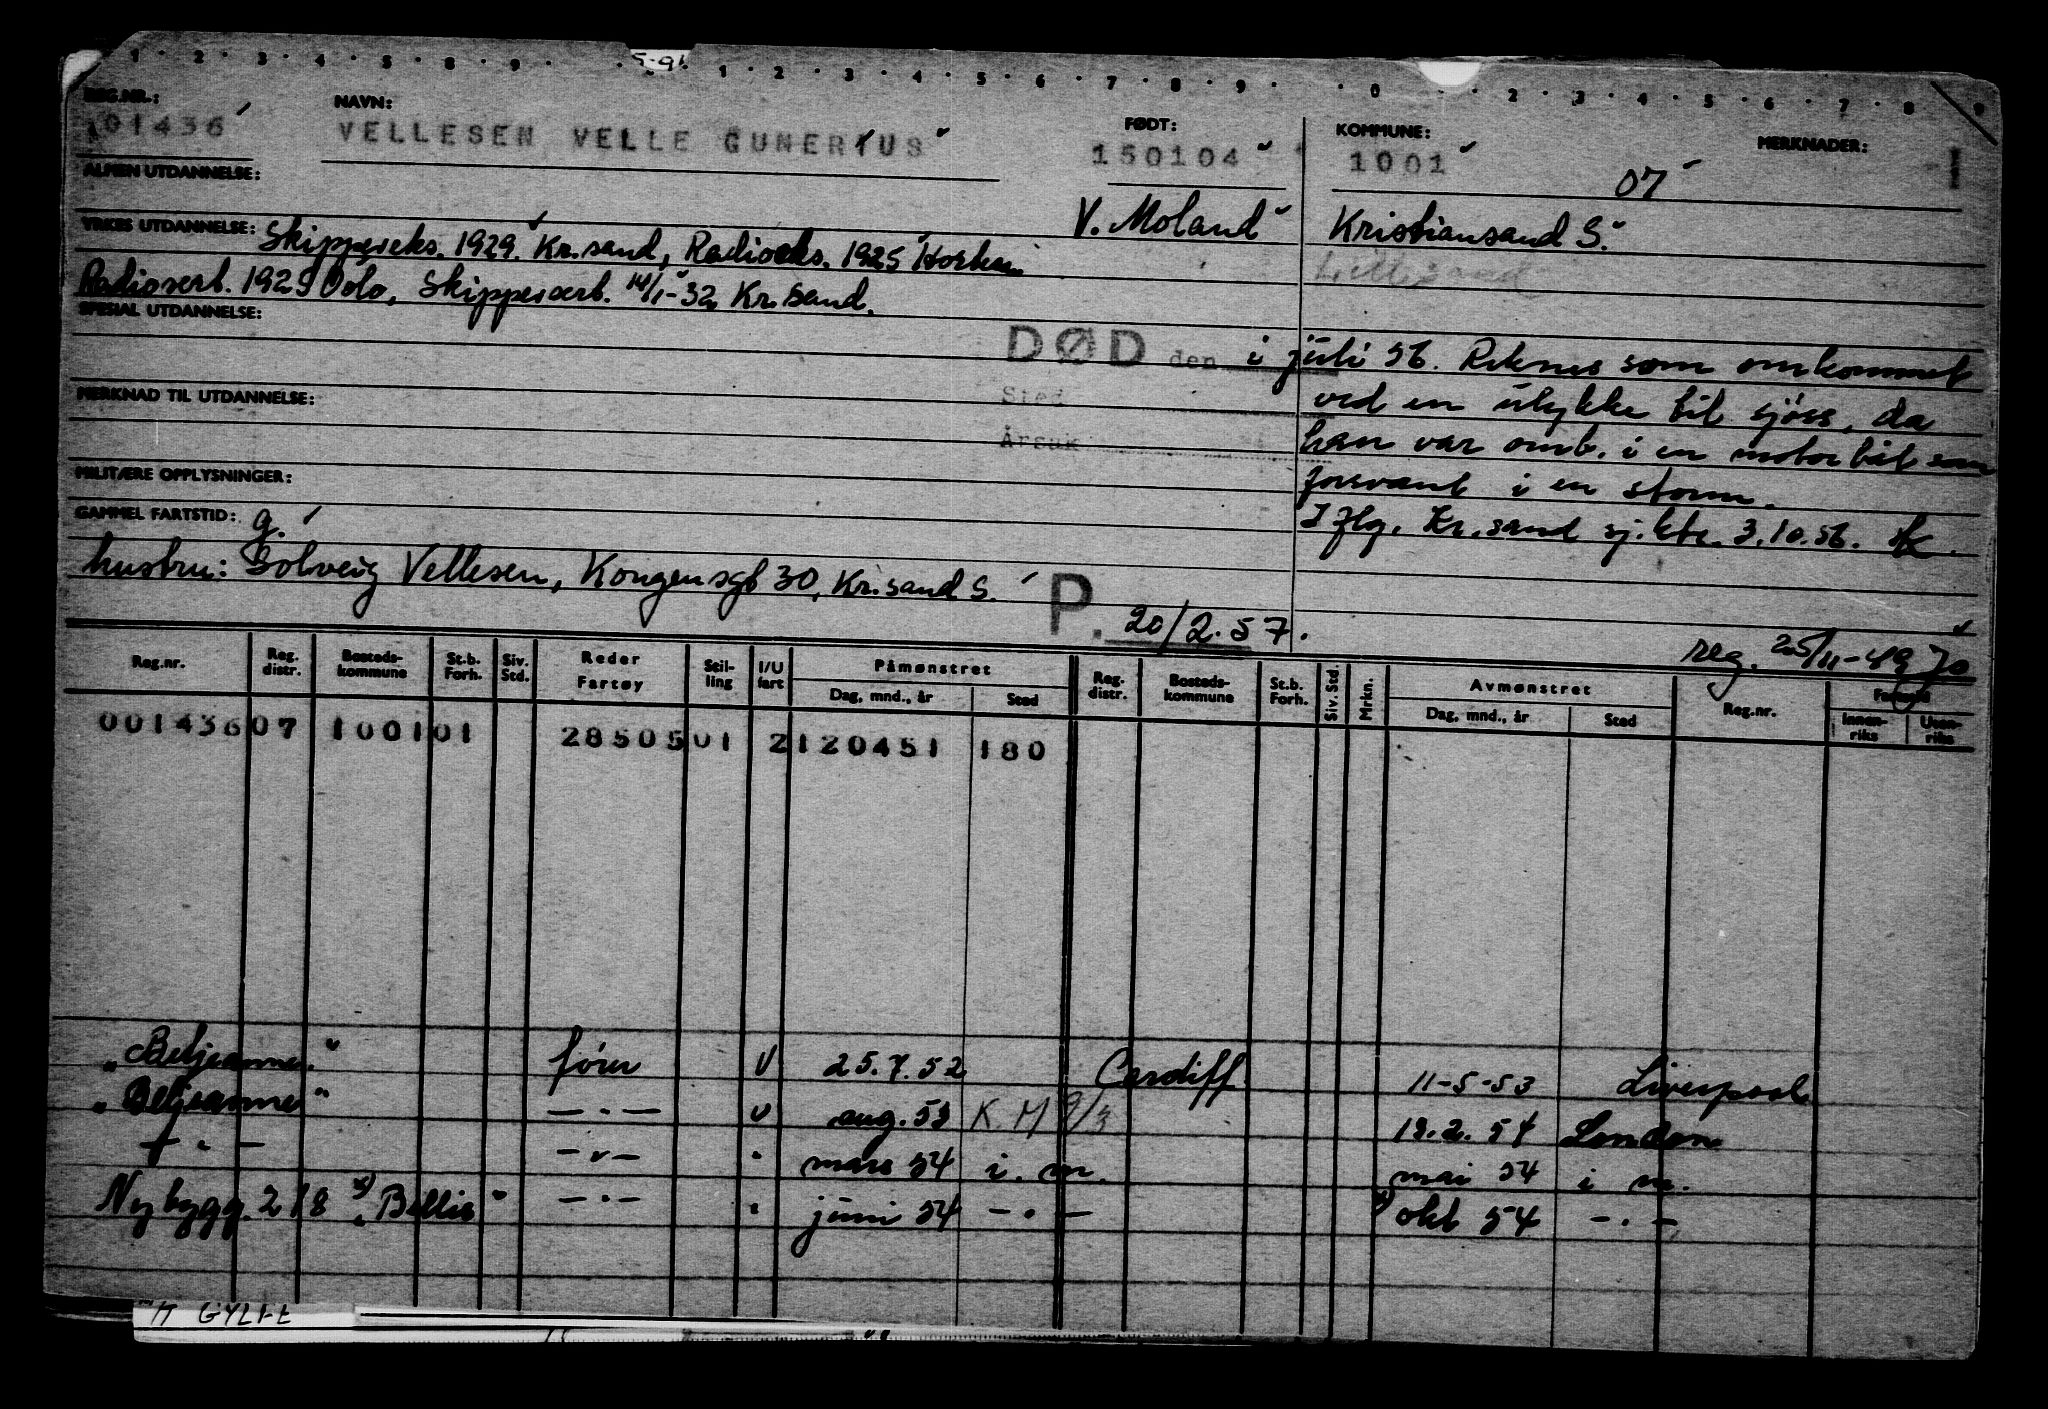 1 · 2 · 3 · 4 · 5 · 8 · 9 · · 1 · 2 · 3 · 4 · 5 · 6 · 7 · 8 · 9 · · 0 · · 2 · 3 · 4 · 5 · 6 · 7 · 8 · 9
REG.NR.: NAVN: FØDT: KOMMUNE: MERKNADER:
01436 VELLESEN VELLE GUNERIUS 150104 1001 07
ALMEN UTDANNELSE: V. Moland Kristiansand S.
YRKES UTDANNELSE: Skippereks. 1929. Kr.sand, Radioeks. 1925 Horten Lillesand
Radiosert. 1925 Oslo, Skippersert. 14/1-32 Kr.sand.
SPESIAL UTDANNELSE:
DØD den i juli 56. Reknes som omkommet
Sted ved en ulykke til sjöss, da
MERKNAD TIL UTDANNELSE:
Årsak han var omb. i en motorbåt som
MILITÆRE OPPLYSNINGER: forsvant i en storm.
GAMMEL FARTSTID: g. I flg. Kr.sand sj.ktr. 3.10.56.
hustru: Solveig Vellesen, Kongensgt 30, Kr.sand S.
P. 20/2.57.
reg. 25/11-49 Jo
Reg.nr. Reg. distr. Bosteds-kommune St.b. Forh. Siv. Std. Reder Fartøy Stil-ling I/U fart Påmønstret Dag, mnd., år Sted Reg. distr. Bosteds-kommune St.b. Forh. Siv. Std. Mrkn. Avmønstret Dag, mnd., år Sted Reg.nr. Innen-riks Uten-riks
001436 07 1001 01 28505 01 2 120451 180
"Beljeanne" förer U 25.7.52 Cardiff 11-5-53 Liverpool
"Beljeanne" — . — U aug. 53 K. M 9/3 19.2.54 London
— " — — " — " mars 54 i. m. mai 54 i m.
Nybygg. 218 x) "Bellis" — . — " juni 54 — . — x) okt 54 — . —